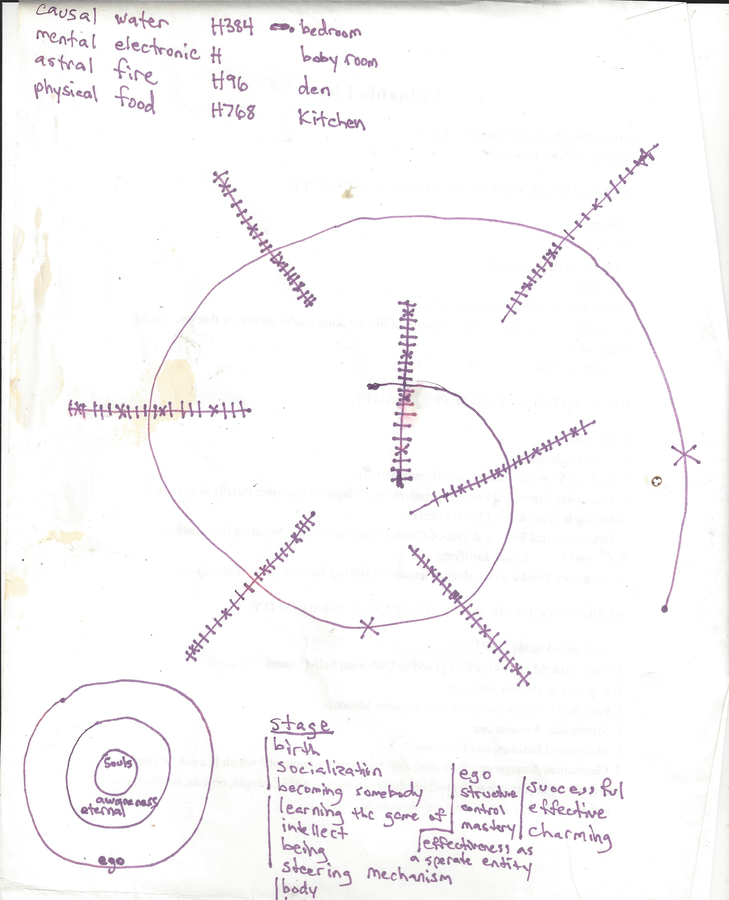 causal water H384 bedroom
mental electronic H baby room
astral fire H96 den
physical food H768 Kitchen
Souls
awareness
eternal
ego
stage
birth
socialization
becoming somebody
learning the game of
intellect
being
steering mechanism
body
ego
structure
control
mastery
effectiveness as
a sperate entity
successful
effective
charming